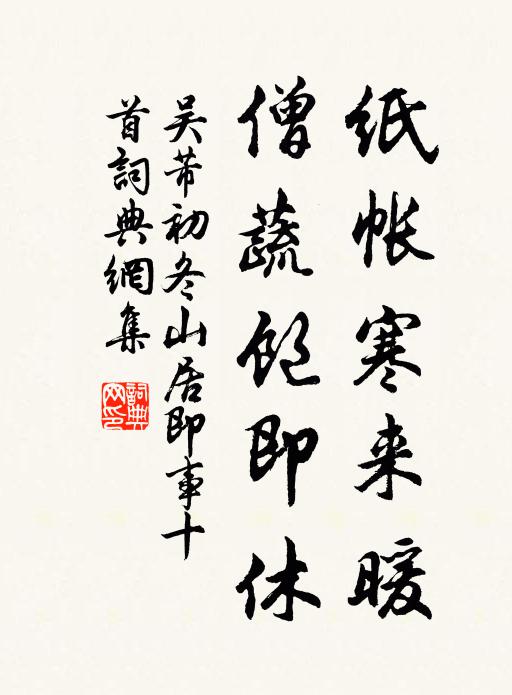 纸帐寒来暖
僧蔬饱即休
吴芾初冬山居即事十
首詞典網集
詞典
网印